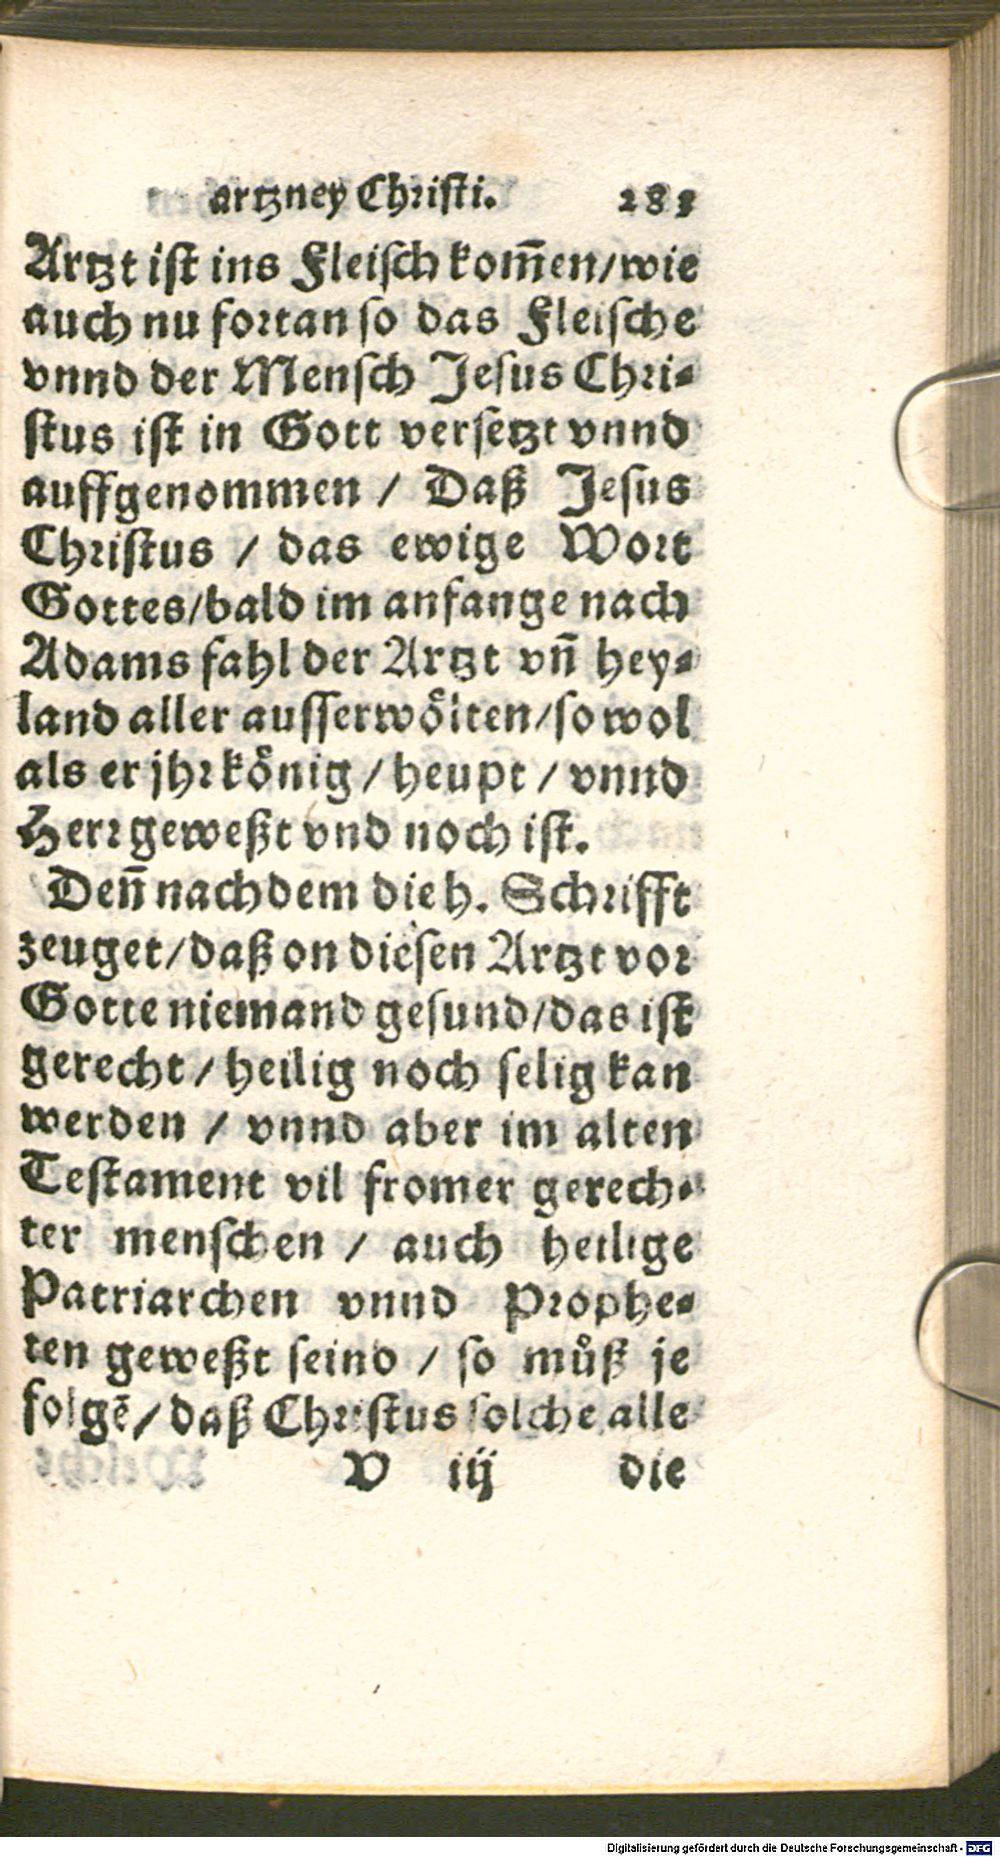 artzney Christi. 283
Artzt ist ins Fleisch kom̄en/wie
auch nu fortan so das Fleische
vnnd der Mensch Jesus Chri-
stus ist in Gott versetzt vnnd
auffgenommen / Daß Jesus
Christus / das ewige Wort
Gottes/bald im anfange nach
Adams fahl der Artzt vn̄ hey-
land aller ausserwölten/so wol
als er jhr könig / heupt / vnnd
Herr geweßt vnd noch ist.
Den̄ nach dem die h. Schrifft
zeuget/daß on diesen Artzt vor
Gotte niemand gesund/das ist
gerecht / heilig noch selig kan
werden / vnnd aber im alten
Testament vil fromer gerech-
ter menschen / auch heilige
Patriarchen vnnd Prophe-
ten geweßt seind / so můß je
folgē/daß Christus solche alle
V iij die
Digitalisierung gefördert durch die Deutsche Forschungsgemeinschaft - DFG